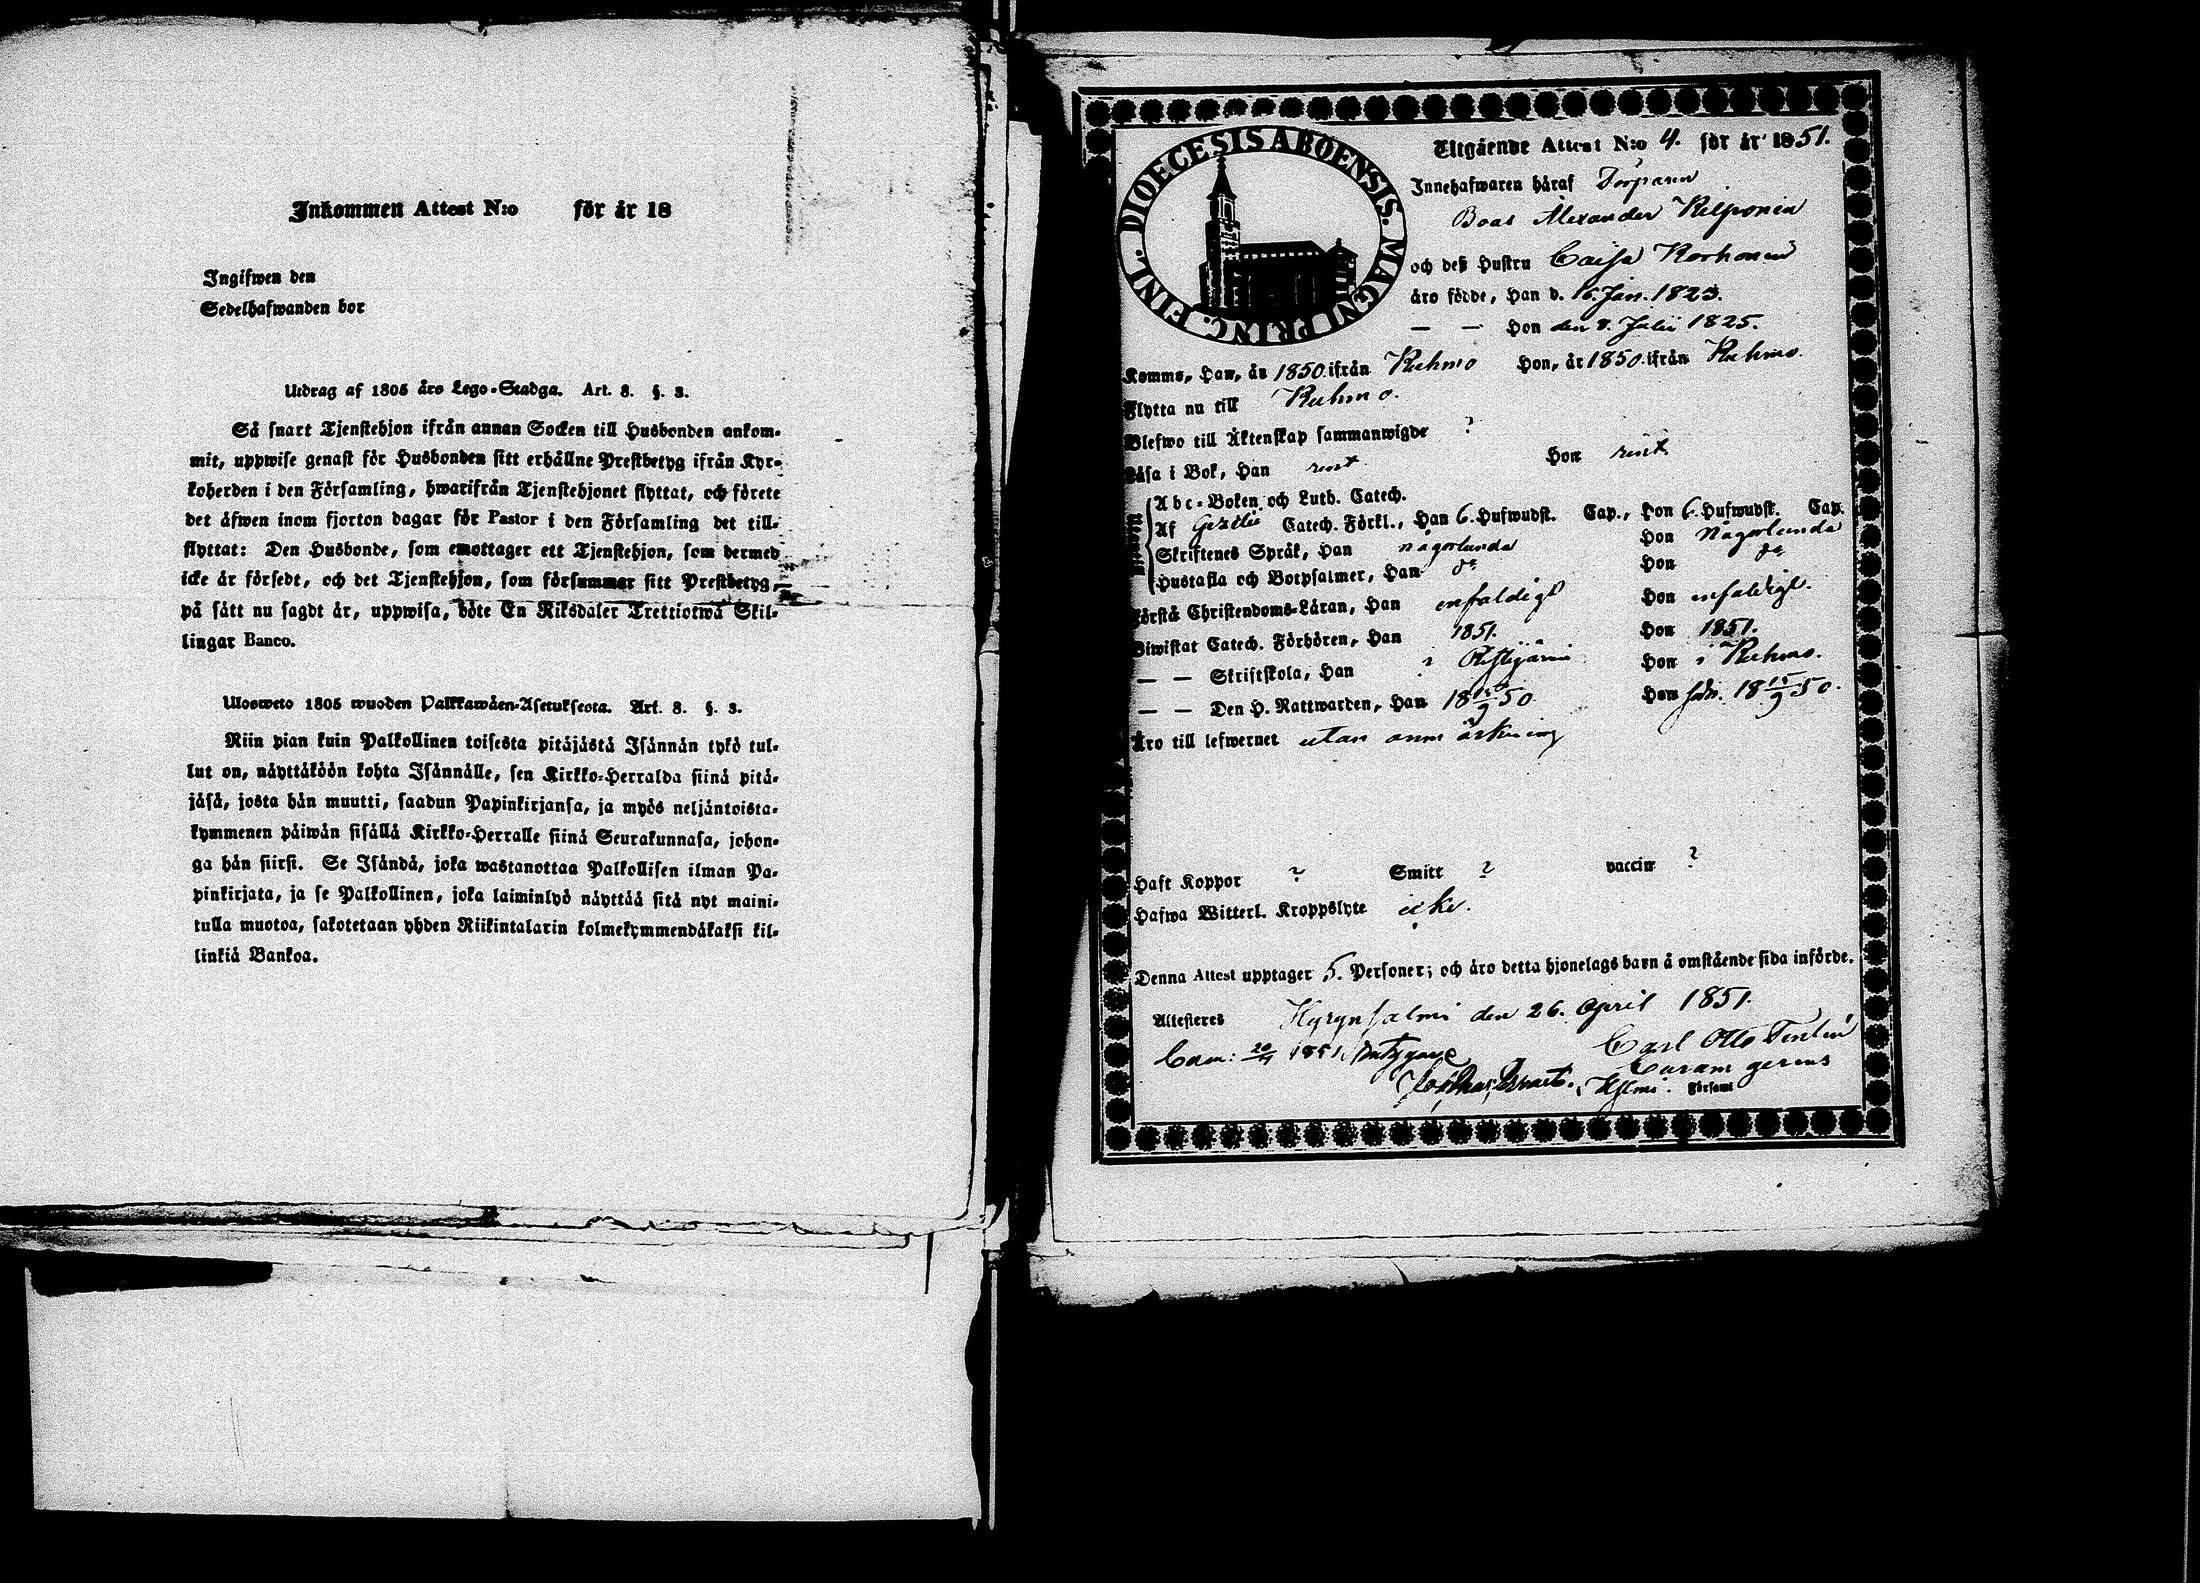 Inkommen Attest N:o för år 18
Ingifwen den
Sedelhafwanden bor
Utdrag af 1805 års Lego-Stadga. Art. 8. §. 3.
Så snart Tjenstehjon ifrån annan Socken till Husbonden ankom-
mit, uppwise genast för Husbonden sitt erhållne Prestbetyg ifrån Kyr-
koherden i den Församling, hwarifrån Tjenstehjonet flyttat, och förete
det äfwen inom fjorton dagar för Pastor i den Församling det till-
flyttat: Den Husbonde, som emottager ett Tjenstehjon, som dermed
icke är försedt, och det Tjenstehjon, som försummar sitt Prestbetyg,
på sätt nu sagdt är, uppwisa, böte En Riksdaler Trettiotwå Skil-
lingar Banco.
Ulosweto 1805 wuoden Palkkawäen-Asetuksesta. Art. 8. §. 3.
Niin pian kuin Palkollinen toisesta pitäjästä Isännän tykö tul-
lut on, näyttäköön kohta Isännälle, sen Kirkko-Herralda siinä pitä-
jäsä, josta hän muutti, saadun Papinkirjansa, ja myös neljäntoista-
kymmenen päiwän sisällä Kirkko-Herralle siinä Seurakunnasa, johon-
ga hän siirsi. Se Isändä, joka wastanottaa Palkollisen ilman Pa-
pinkirjata, ja se Palkollinen, joka laiminlyö näyttää sitä nyt maini-
tulla muotoa, sakotetaan yhden Riikintalarin kolmekymmendäkaksi kil-
linkiä Bankoa.
DIOECESIS ABOENSIS. MAGNI PRINC. FINL.
Utgående Attest N:o 4. för år 1851.
Innehafwaren häraf Torparen
Boas Alexander Kilponen
och deß Hustru Caisa Korhonen
äro födde, Han d. 16. Jan. 1823.
— — Hon den 8. Julii 1825.
Komms, Han, år 1850 ifrån Kuhmo Hon, år 1850 ifrån Kuhmo.
Flytta nu till Kuhmo.
Blefwo till Äktenskap sammanwigde ?
Läsa i Bok, Han rent Hon rent
Abc-Boken och Luth. Catech.
Af Gezelii Catech. Förkl., Han 6. Hufwudst. Cap., Hon 6. Hufwudst. Cap.
Skriftenes Språk, Han någorlunda Hon Någorlunda
Hustafla och Botpsalmer, Han do Hon do
Förstå Christendoms-Läran, Han enfaldigt Hon enfaldigt.
Biwistat Catech. Förhören, Han 1851. Hon 1851.
— — Skriftskola, Han i Ristijärvi Hon i Kuhmo.
— — Den H. Nattwarden, Han 18 15/9 50 Hon 18 15/9 50.
Äro till lefwernet utan anmärkning
Haft Koppor ? Smitt ? vaccin ?
Hafwa Witterl. Kroppslyte icke.
Denna Attest upptager 5. Personer; och äro detta hjonelags barn å omstående sida införde.
Attesteres Hyrynsalmi den 26. April 1851.
Carl Otto
Curam gerens
Församl